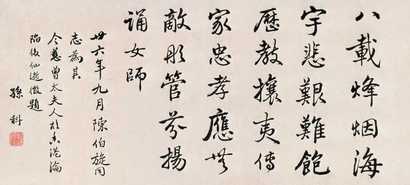 八載烽烟海
宇悲艱難飽
歷教攘夷傳
家忠孝應無
敵彤管芬揚
誦女師
卅六年九月陳伯旋同
志為其
令慈曾太夫人於香港淪
陷後仙逝徵題
孫科